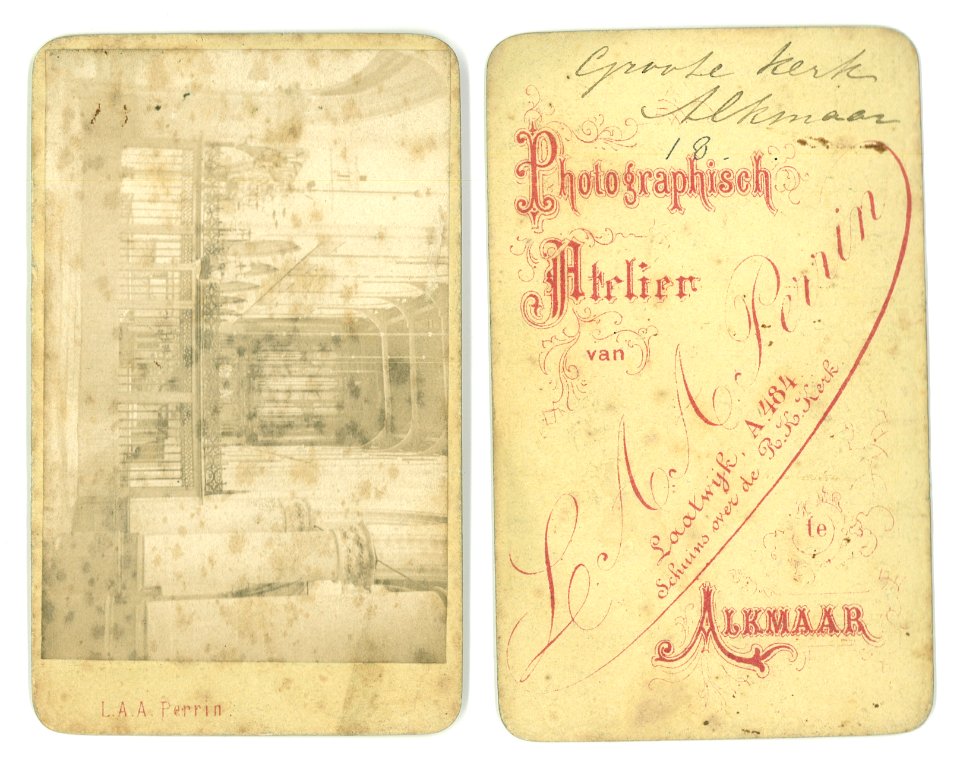 L.A.A. Perrin
Groote Kerk
Alkmaar
18
Photographisch
Atelier
van
L. A. A. Perrin
Laatwijk, A 484
Schuins over de R. K. Kerk
te
ALKMAAR